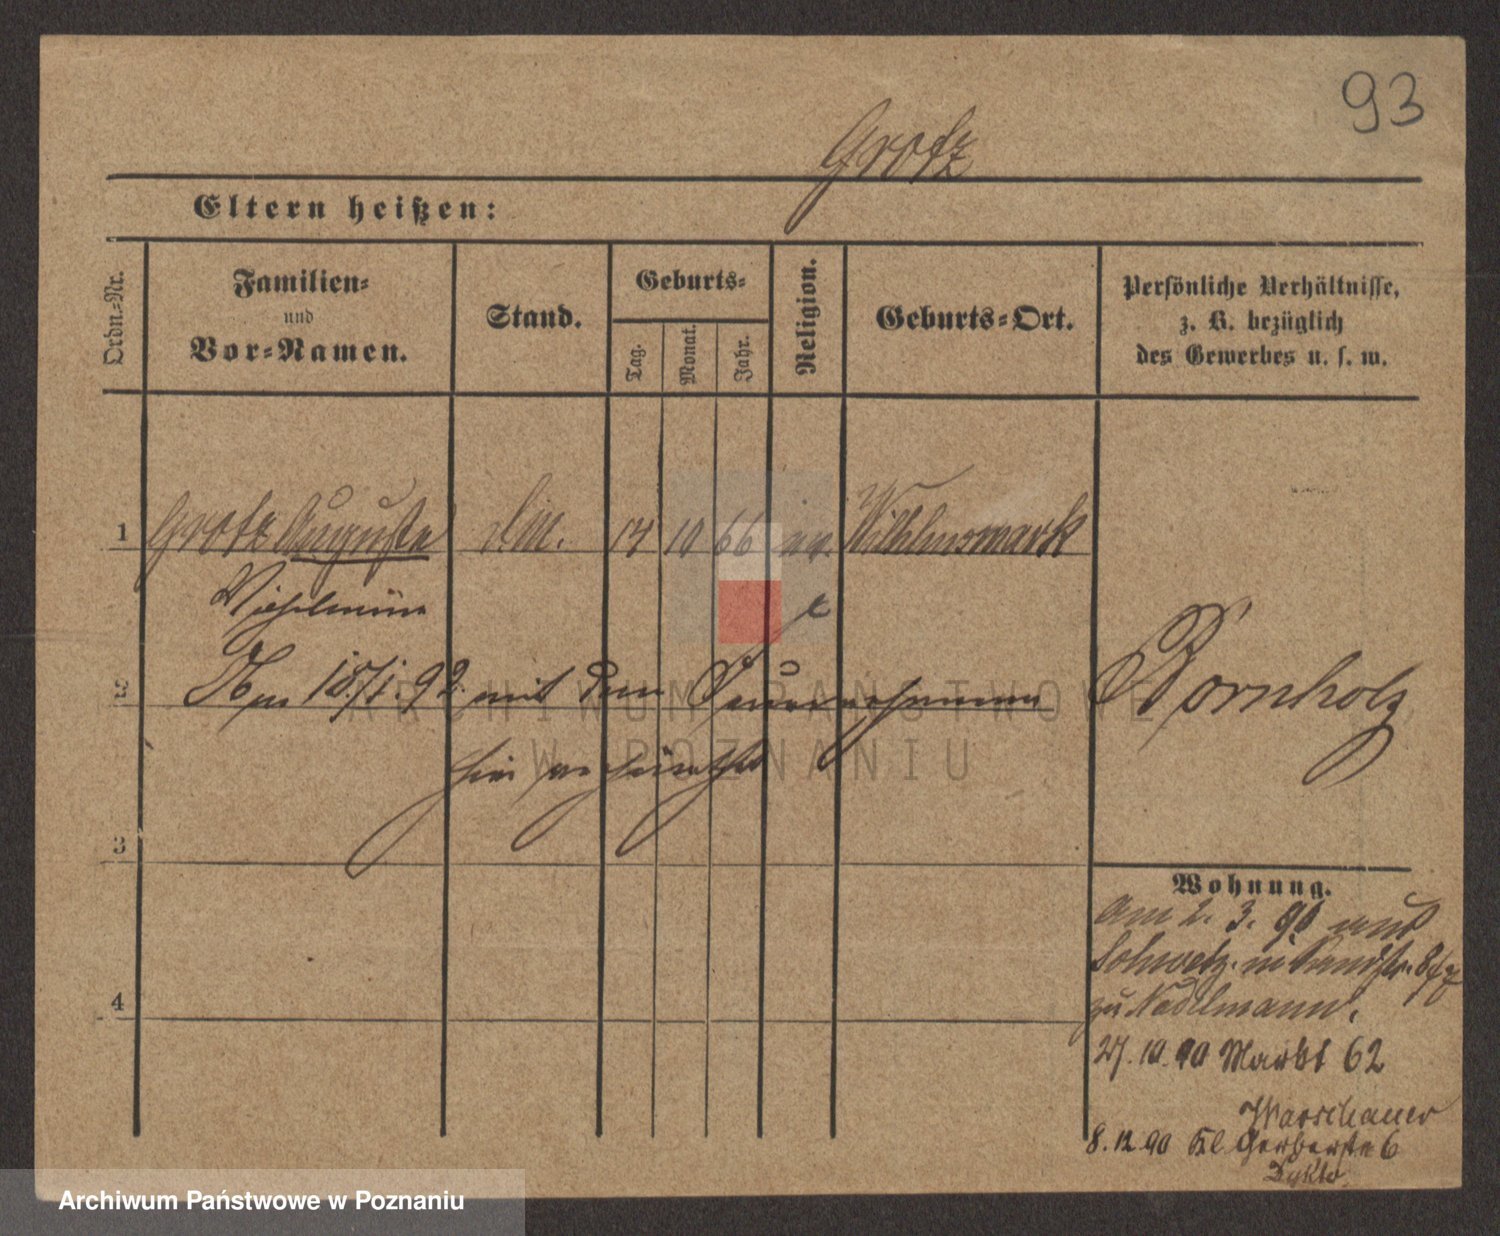 93
Grotz
Eltern heißen:
Ordn.-Nr.
Familien-
und
Vor-Namen.
Stand.
Geburts-
Tag.
Monat.
Jahr.
Religion.
Geburts-Ort.
Persönliche Verhältnisse,
z. B. bezüglich
des Gewerbes u. s. w.
1 Grotz Auguste 10 66 ev. Wilhelmsmark
2 Am 18/1. 92 mit dem Bornholz
hier verheirathet
3
4
Wohnung.
am 2. 3. 90 aus
Schwetz in
zu Nadelmann.
27. 10. 90 Markt 62
Warschauer
8. 12. 90 Kl Gerberstr 6
ARCHIWUM PAŃSTWOWE
W POZNANIU
Archiwum Państwowe w Poznaniu